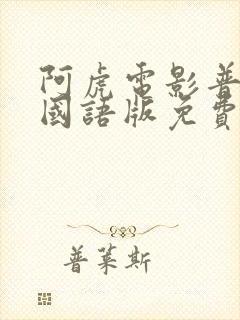 阿虎電影普
國語版免費
普萊斯